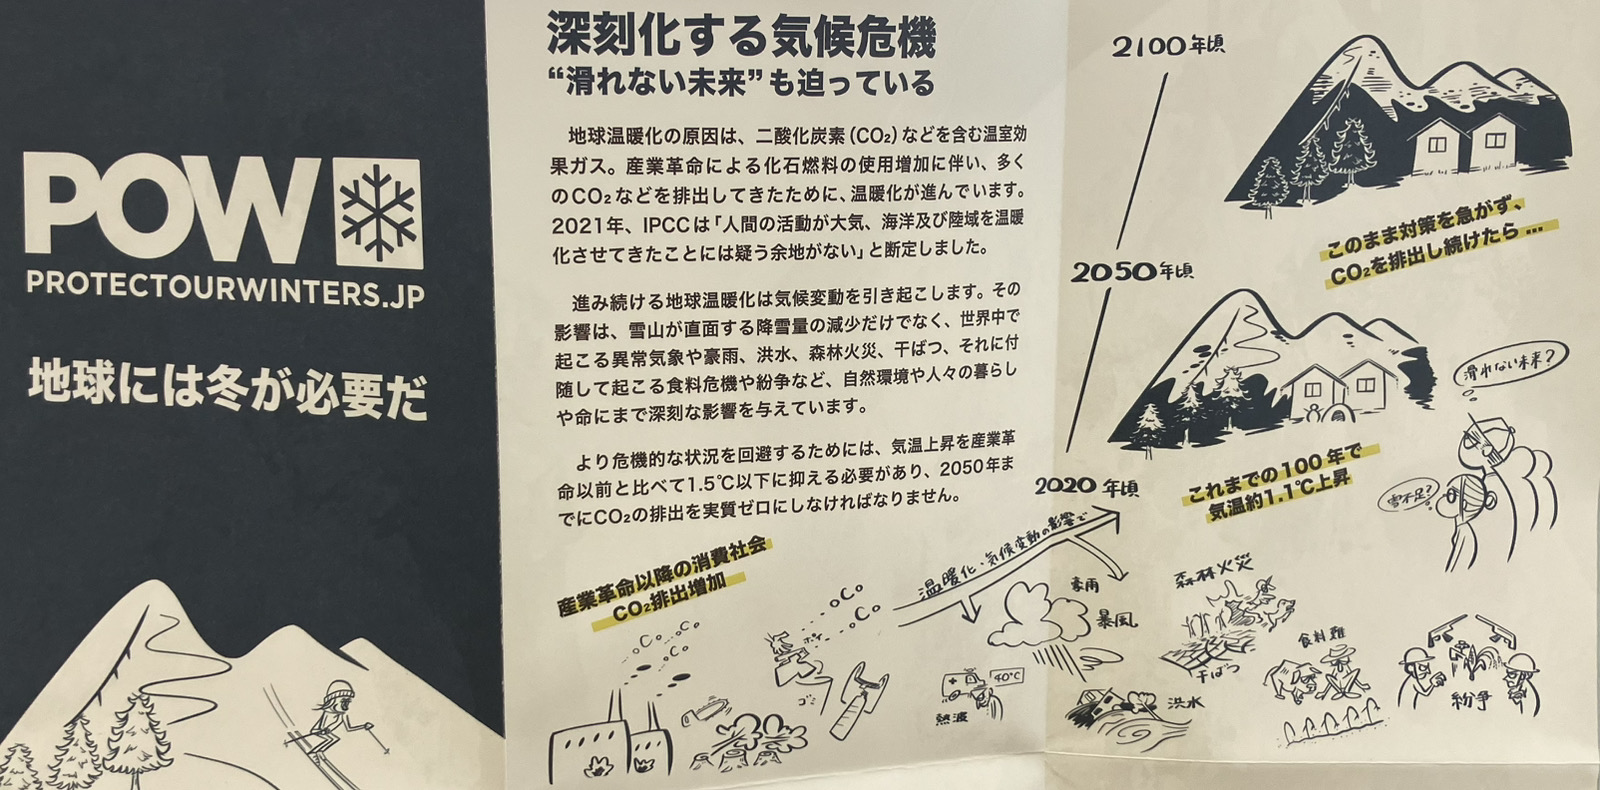 POW
PROTECTOURWINTERS.JP
地球には冬が必要だ
深刻化する気候危機
“滑れない未来”も迫っている
地球温暖化の原因は、二酸化炭素(CO₂)などを含む温室効
果ガス。産業革命による化石燃料の使用増加に伴い、多く
のCO₂などを排出してきたために、温暖化が進んでいます。
2021年、IPCCは「人間の活動が大気、海洋及び陸域を温暖
化させてきたことには疑う余地がない」と断定しました。
進み続ける地球温暖化は気候変動を引き起こします。その
影響は、雪山が直面する降雪量の減少だけでなく、世界中で
起こる異常気象や豪雨、洪水、森林火災、干ばつ、それに付
随して起こる食料危機や紛争など、自然環境や人々の暮らし
や命にまで深刻な影響を与えています。
より危機的な状況を回避するためには、気温上昇を産業革
命以前と比べて1.5℃以下に抑える必要があり、2050年ま
でにCO₂の排出を実質ゼロにしなければなりません。
産業革命以降の消費社会
CO₂排出増加
CO₂
CO₂
CO₂
CO₂
ポイ
ゴミ
温暖化・気候変動の影響で
熱波
40℃
豪雨
暴風
洪水
森林火災
干ばつ
食料難
紛争
2100年頃
このまま対策を急がず、
CO₂を排出し続けたら…
2050年頃
滑れない未来?
雪不足?
2020年頃
これまでの100年で
気温約1.1℃上昇